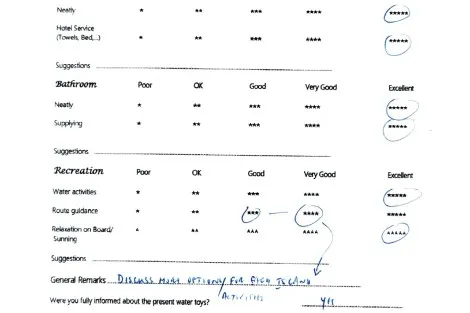 Neatly * ** *** **** *****
Hotel Service
(Towels, Bed,...) * ** *** **** *****
Suggestions
Bathroom Poor OK Good Very Good Excellent
Neatly * ** *** **** *****
Supplying * ** *** **** *****
Suggestions
Recreation Poor OK Good Very Good Excellent
Water activities * ** *** **** *****
Route guidance * ** *** **** *****
Relaxation on Board/ * ** *** **** *****
Sunning
Suggestions
General Remarks DISCUSS MORE OPTIONS/ FOR EACH ISLAND
ACTIVITIES
Were you fully informed about the present water toys? yes